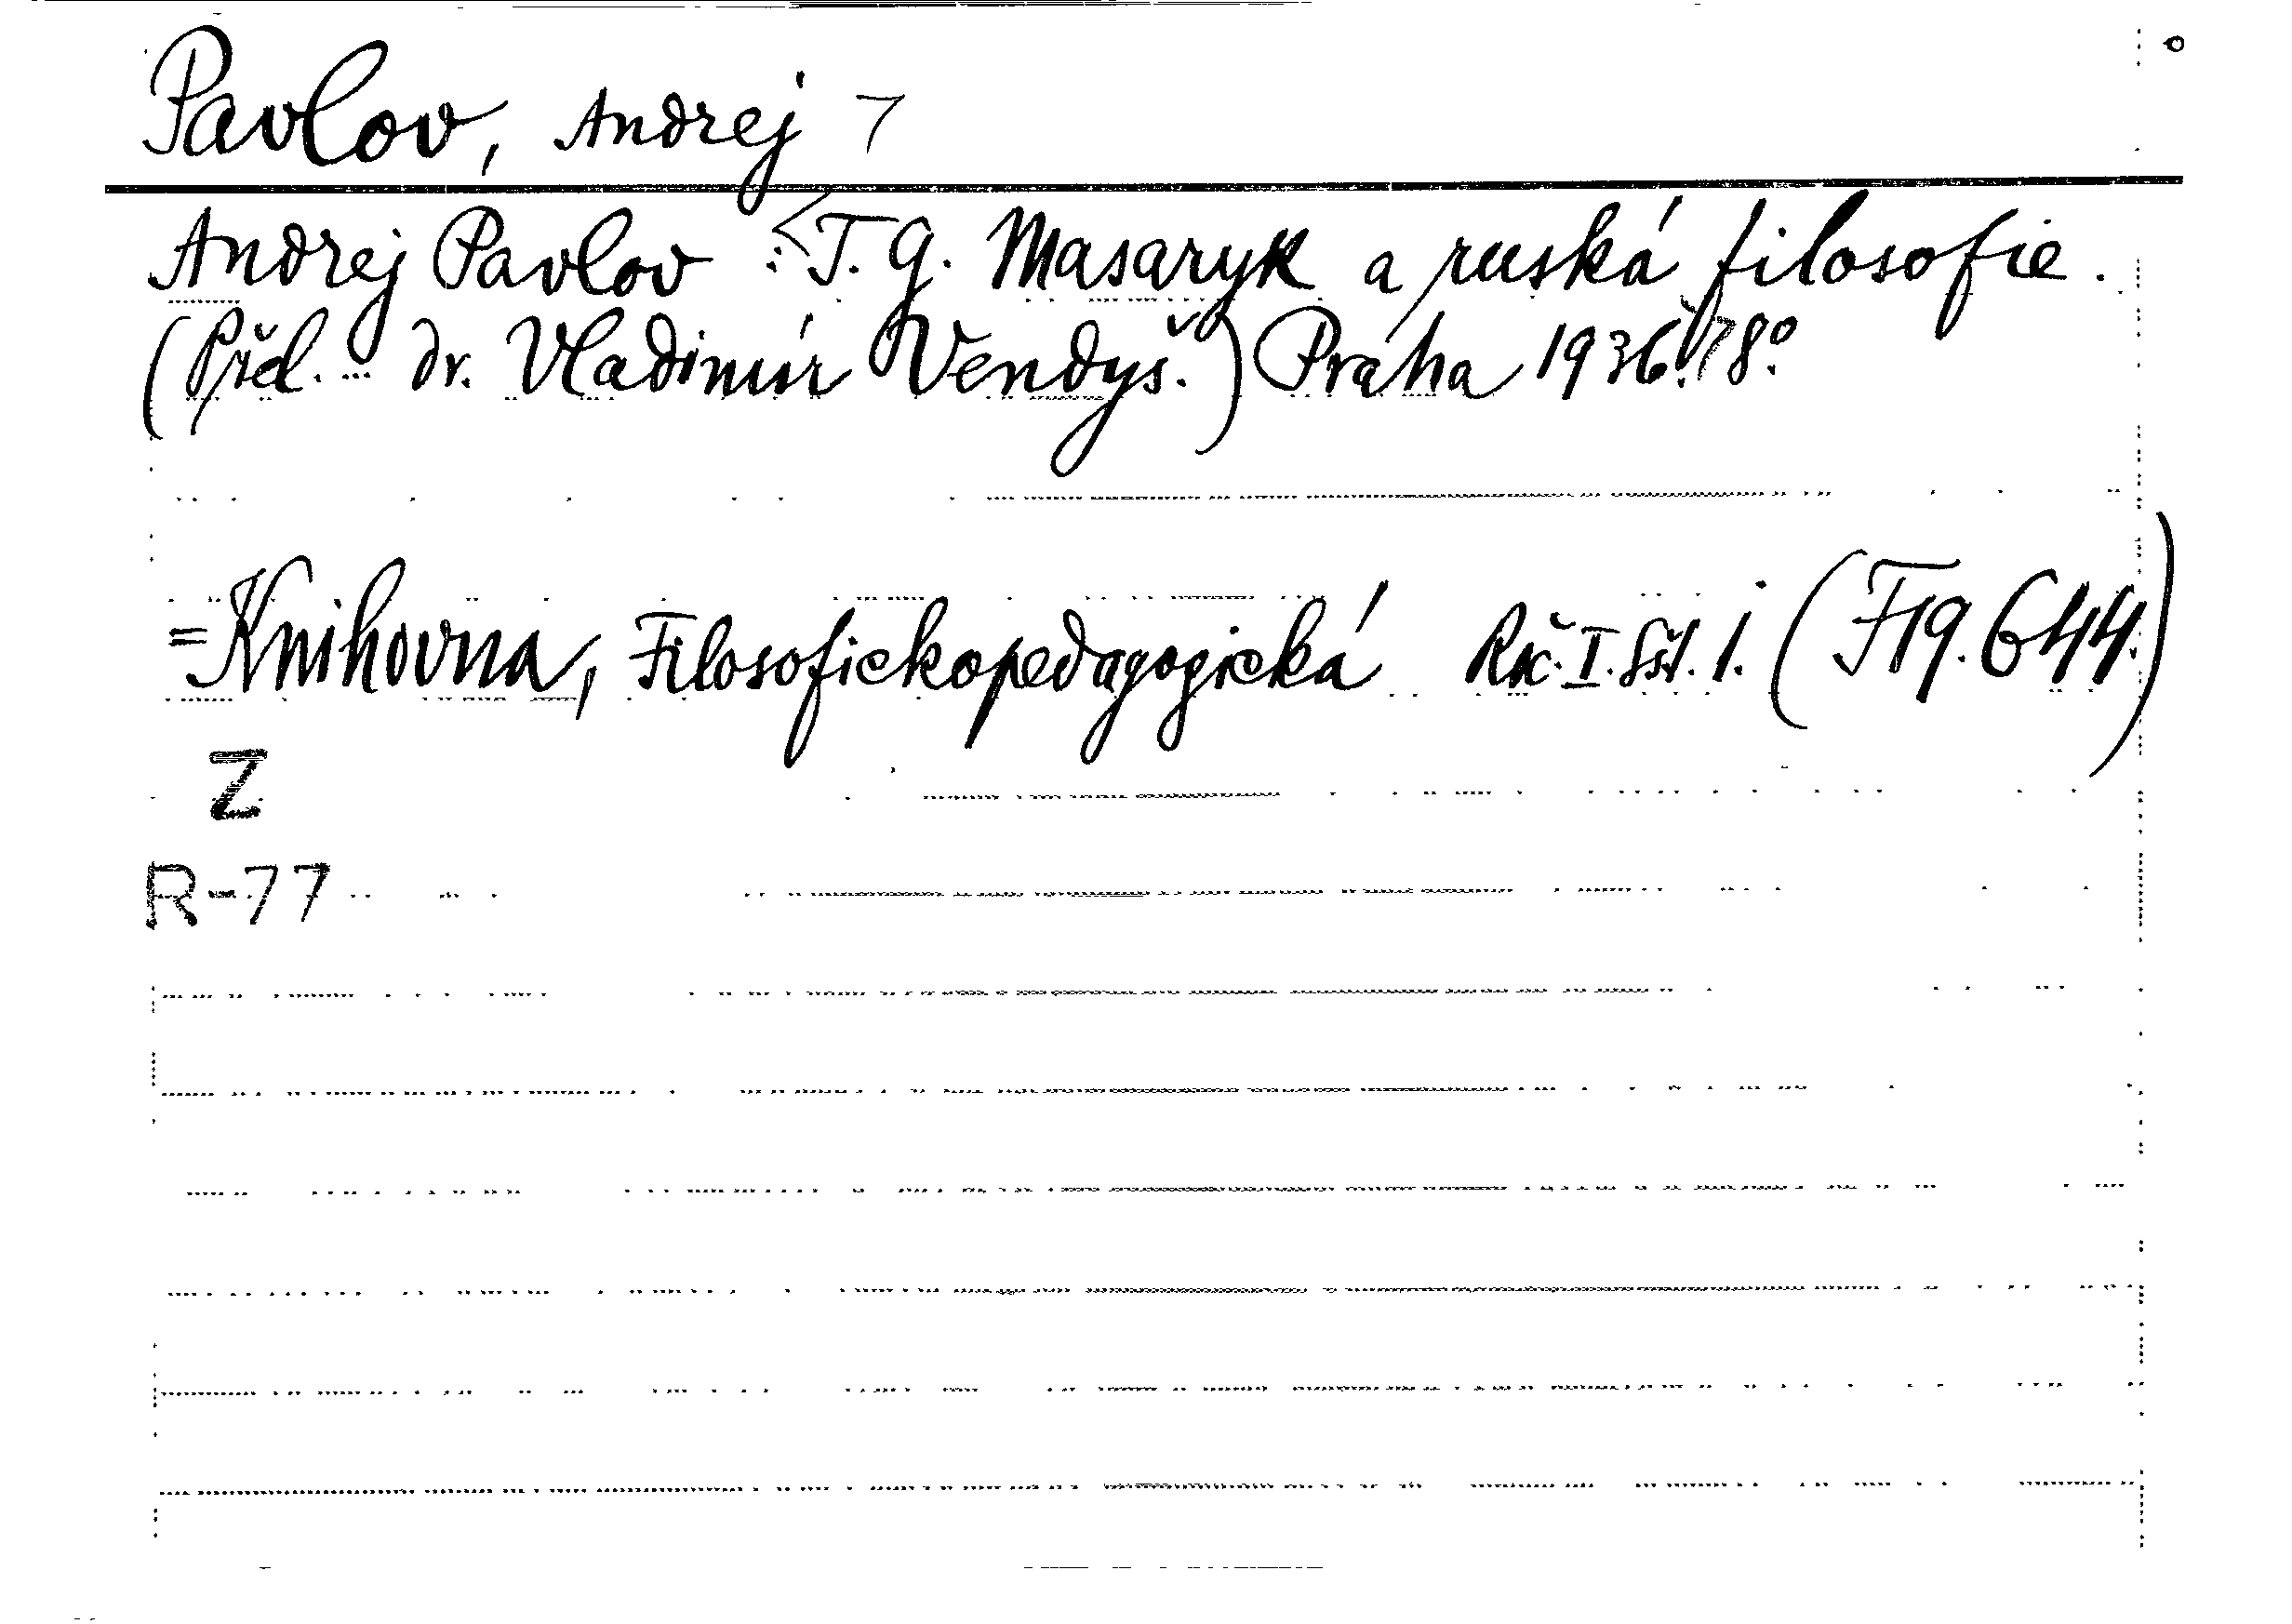 Pavlov, Andrej
Andrej Pavlov : T. G. Masaryk a ruská filosofie.
(Přel. - dr. Vladimír Vendyš.) Praha 1936. 8°.
= Knihovna, Filosofickopedagogická Roč. I. Sšt. 1. (F19.644.)
Z
R-77